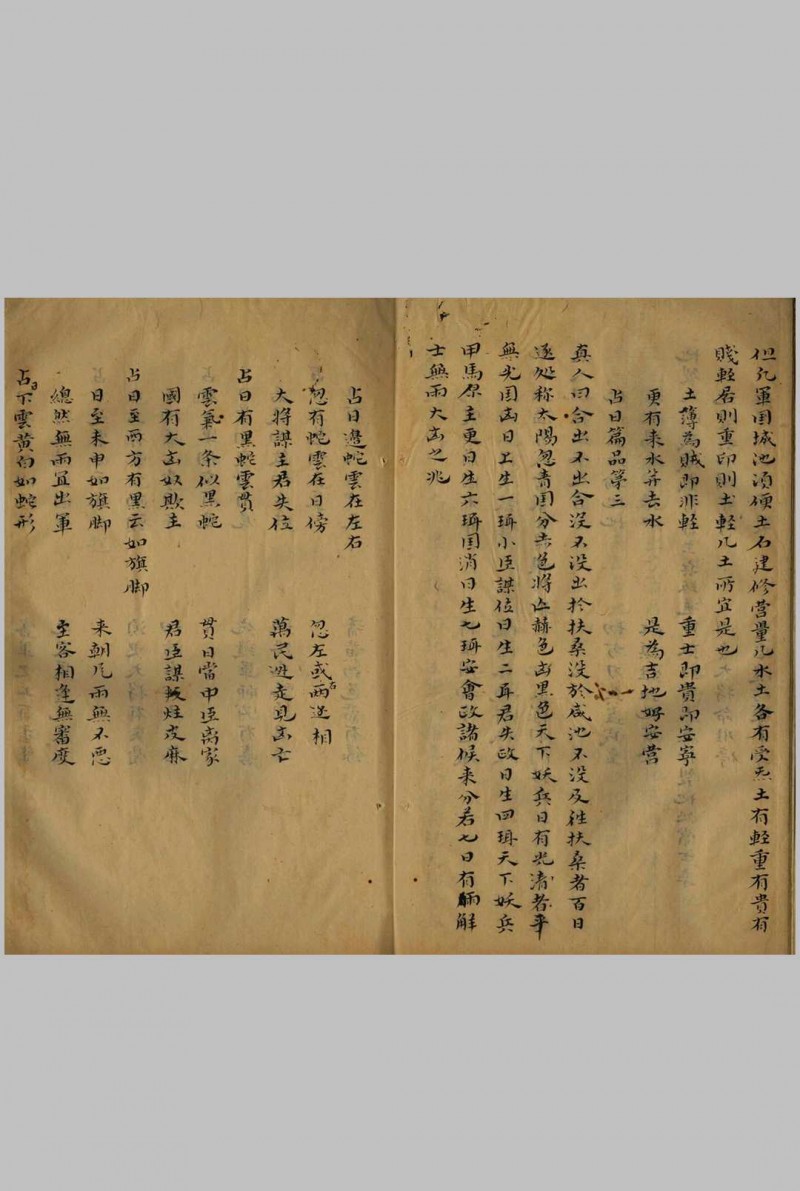 但凡軍国城池須便土石建修营量凡水土各有受炁土有輕重有貴有
賤輕居則重印則土輕凡土所宜是也
土薄為賊即非輕 重土即貴即安寧
更有来水并去水 是為吉地好安营
占日篇品第三
真人曰合出不出合没不没出於扶桑没於咸池不没及徃扶桑者百日
逐処称太陽忽青国分赤色將凶赫色凶黑色天下妖兵日有光清者平
無光国凶日上生一珥小臣謀位日生二珥君失政日生四珥天下妖兵
甲馬原主更日生六珥国消日生七珥安會政諸候来分君七日有暈解
士無雨大凶之兆
占日邊蛇雲在左右
忽有蛇雲在日傍 忽左或両迸相
大将謀主君失位 萬民逃走見凶亡
占日有黒蛇雲貫
雲氣一条似黑蛇 貫日當中臣离家
國有大凶奴欺主 君臣謀叛炷皮麻
占日至西方有黒云如旗脚
日至未申如旗脚 来朝凡雨無不悪
總然無雨宜出軍 主客相逢無審度
占日下雲黄白如蛇形